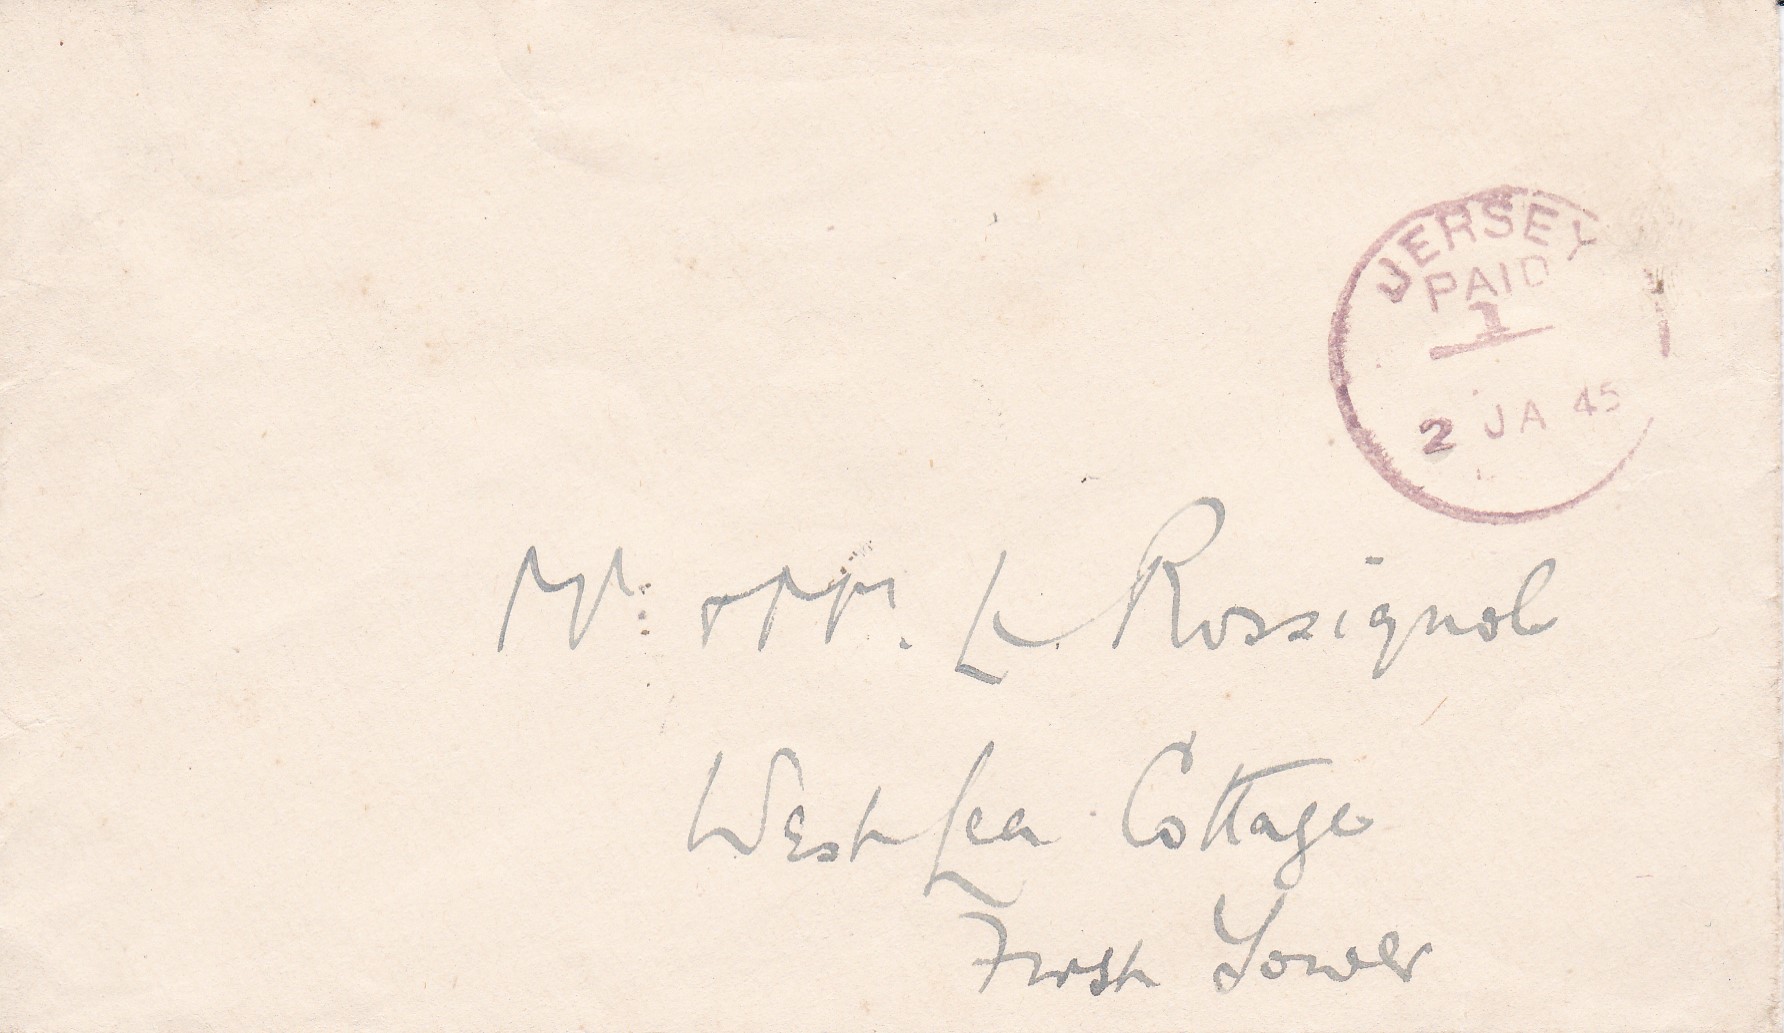 JERSEY
PAID
1
2 JA 45
Mr & Mrs. Le Rossignol
West Lea Cottage
First Tower